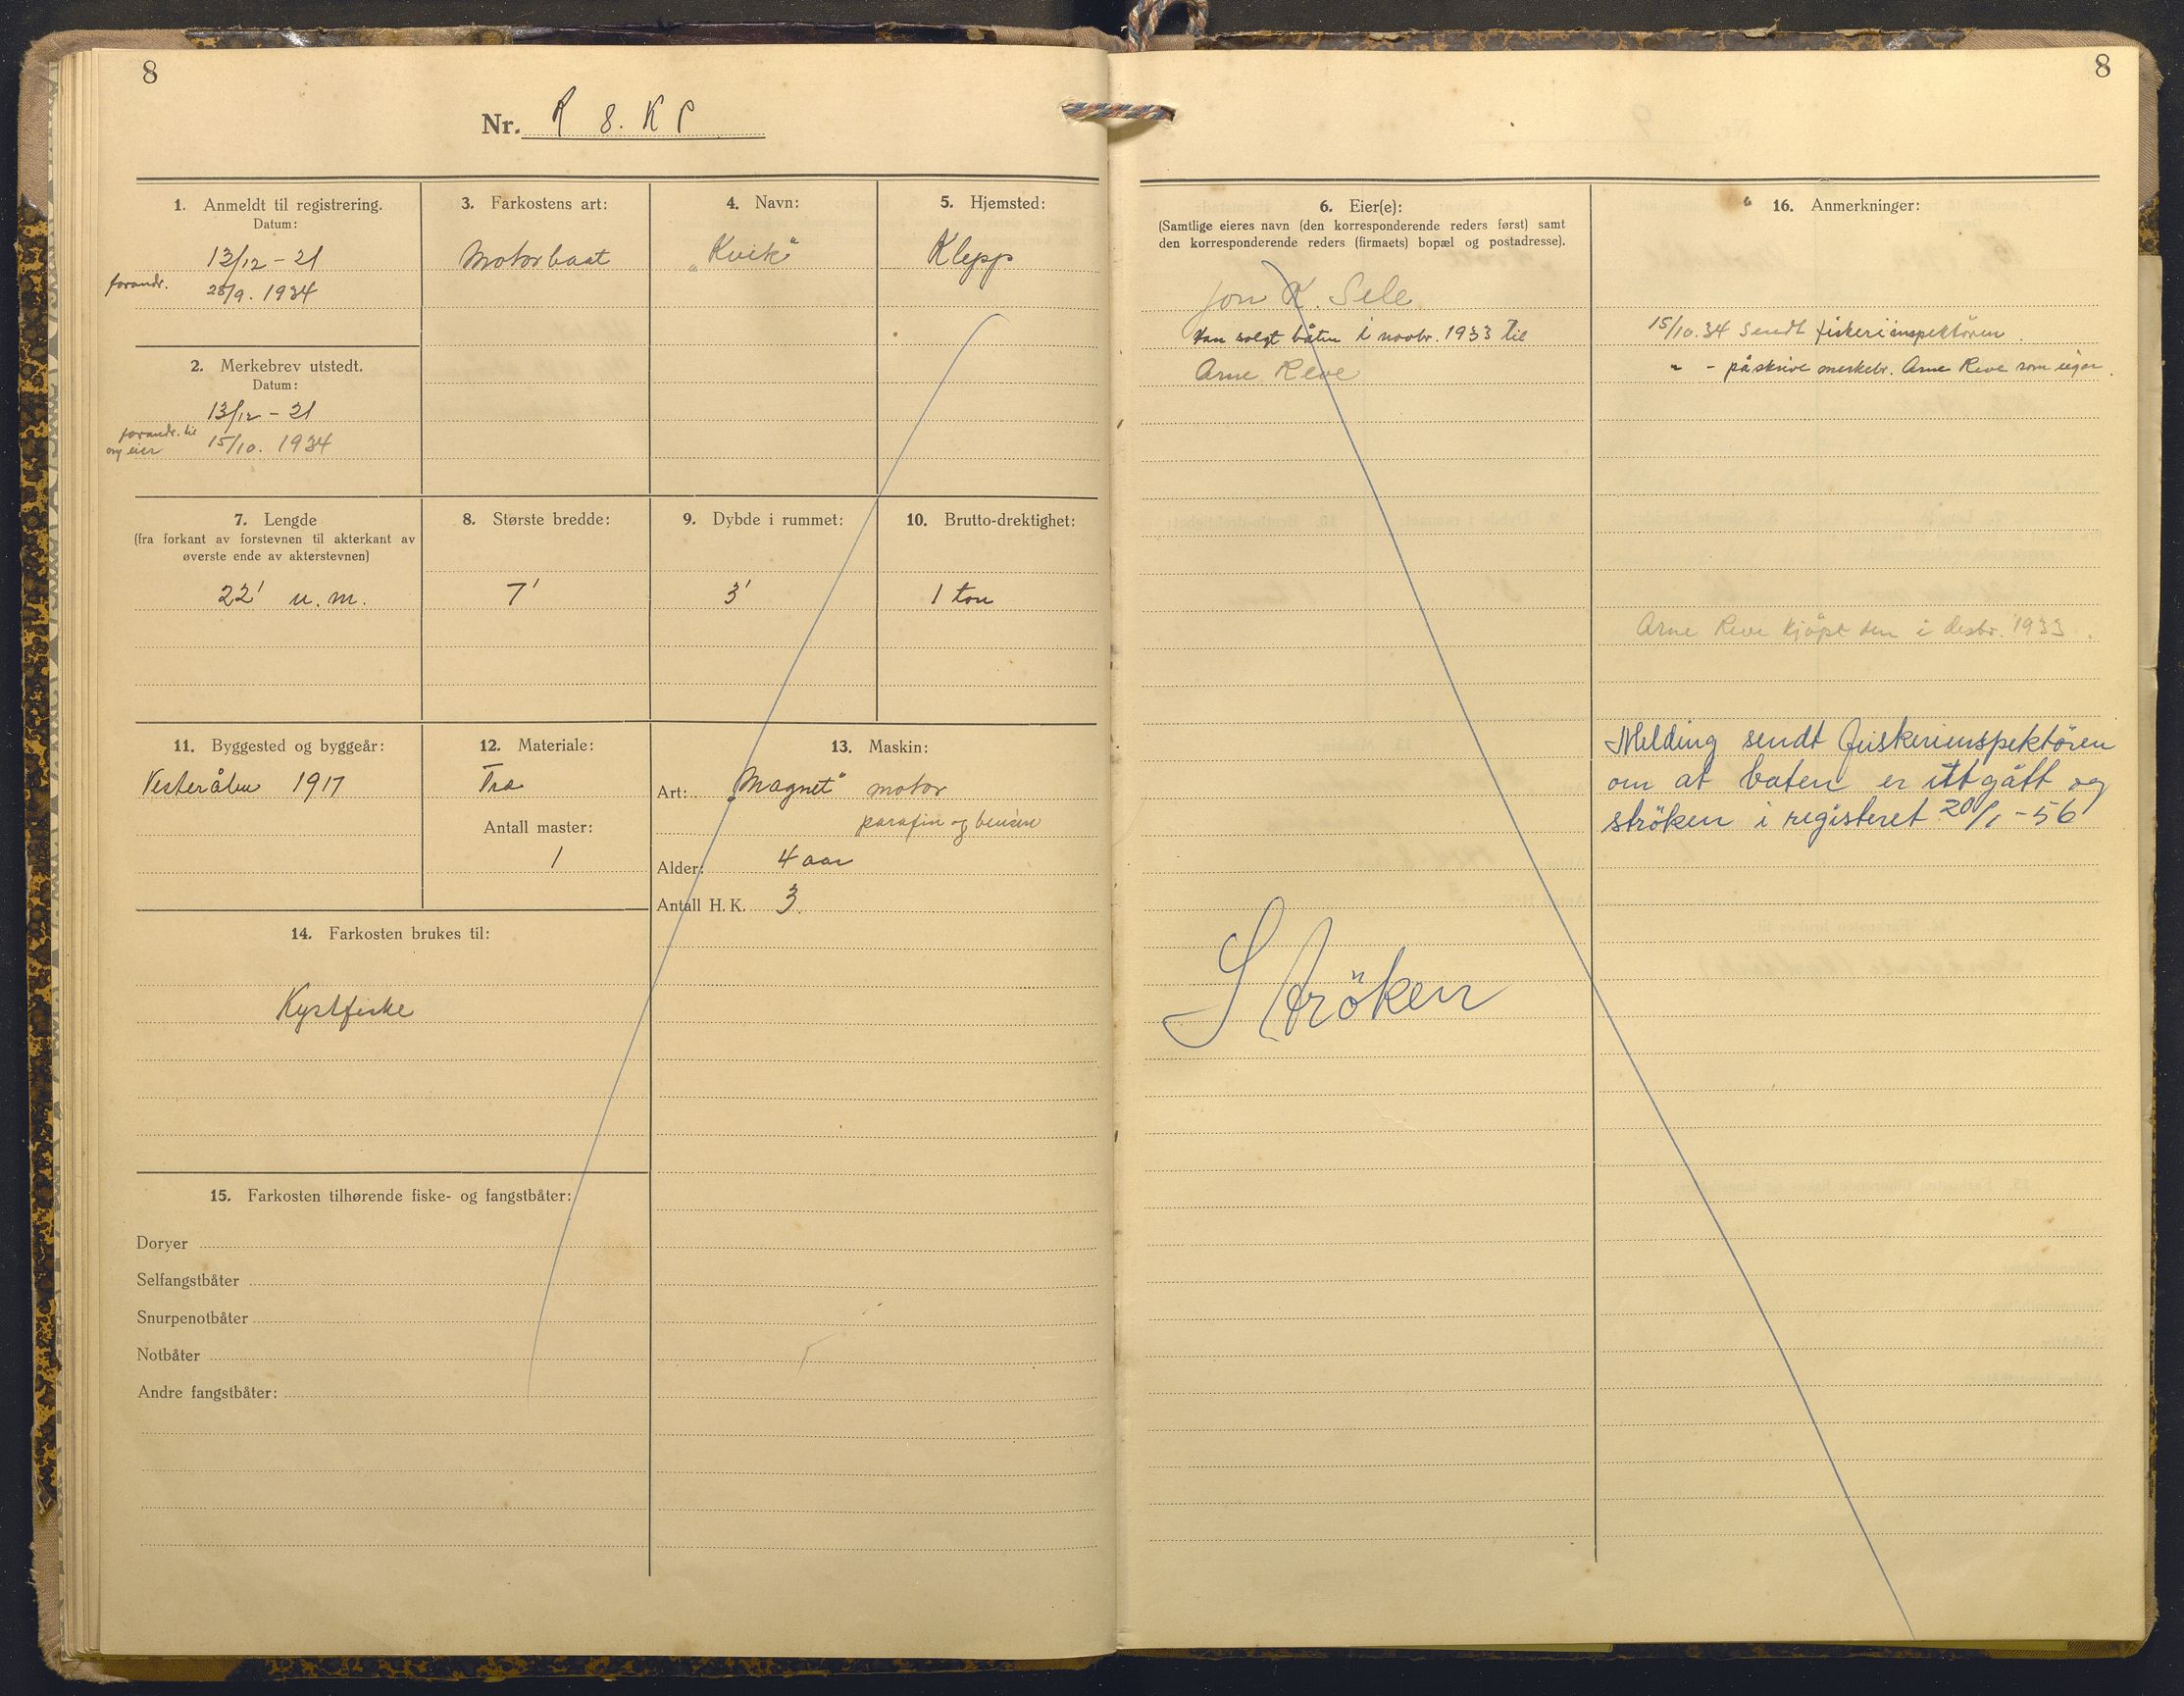 8
Nr. R 8. K P
1. Anmeldt til registrering.
Datum:
13/12 - 21
forandr. 28/9. 1934
2. Merkebrev utstedt.
Datum:
13/12 - 21
forandr. til
ny eier 15/10. 1934
3. Farkostens art:
Motorbaat
4. Navn:
„Kvik“
5. Hjemsted:
Klepp
7. Lengde
(fra forkant av forstevnen til akterkant av
øverste ende av akterstevnen)
22' u. m.
8. Største bredde:
7'
9. Dybde i rummet:
3'
10. Brutto-drektighet:
1 ton
11. Byggested og byggeår:
Vesterålen 1917
12. Materiale:
Træ
Antall master:
1
13. Maskin:
Art: „Magnet“ motor
parafin og bensin
Alder: 4 aar
Antall H. K. 3.
14. Farkosten brukes til:
Kystfiske
15. Farkosten tilhørende fiske- og fangstbåter:
Doryer
Selfangstbåter
Snurpenotbåter
Notbåter
Andre fangstbåter:
8
6. Eier(e):
(Samtlige eieres navn (den korresponderende reders først) samt
den korresponderende reders (firmaets) bopæl og postadresse).
Jon K. Sele
Han solgt båten i novbr. 1933 til
Arne Reve
Ströken
16. Anmerkninger:
15/10. 34 Sendt fiskeriinspektören.
" - påskrive merkebr. Arne Reve som eigar.
Arne Reve kjöpt den i desbr. 1933.
Melding sendt fuiskeriinspektören
om at baten er uttgått og
ströken i registeret 20/1 - 56